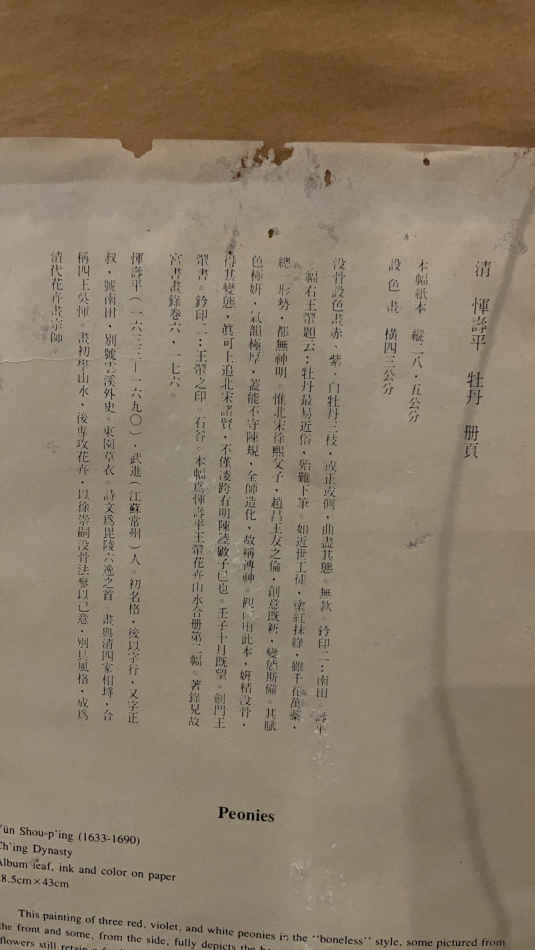 清 惲壽平 牡丹 册頁
本幅紙本 縱二八·五公分
設色畫 橫四三公分
没骨設色畫赤、紫、白牡丹三枝，或正或側，曲盡其態。無款。鈐印二：南田、壽平
幅右王翬題云：牡丹最易近俗，殆難下筆，如近世工徒，塗紅抹綠，雖千花萬蘂，
總一形勢，都無神明。惟北宋徐熙父子，趙昌王友之倫，創意既新，變態斯備。其賦
色極妍，氣韻極厚，蓋能不守陳規，全師造化，故稱傳神。觀 此本，妍精没骨，
得其變態，真可上追北宋諸賢，不僅凌跨有明陳陸數子已也。壬子十月既望。劍門王
翬書。鈐印二：王翬之印、石谷。本幅爲惲壽平王翬花卉山水合册第二幅。著錄見故
宮書畫錄卷六，一七六。
惲壽平（一六三三－一六九〇），武進（江蘇常州）人。初名格，後以字行，又字正
叔，號南田，別號雲溪外史、東園草衣。詩文爲毘陵六逸之首。畫與清四家相埒，合
稱四王吳惲。畫初學山水，後專攻花卉，以徐崇嗣没骨法參以己意，別具風格，成爲
清代花卉畫宗師。
Peonies
Yün Shou-p'ing (1633-1690)
Ch'ing Dynasty
Album leaf, ink and color on paper
28.5cm×43cm
This painting of three red, violet, and white peonies in the "boneless" style, some pictured from
the front and some, from the side, fully depicts the
flowers still retain